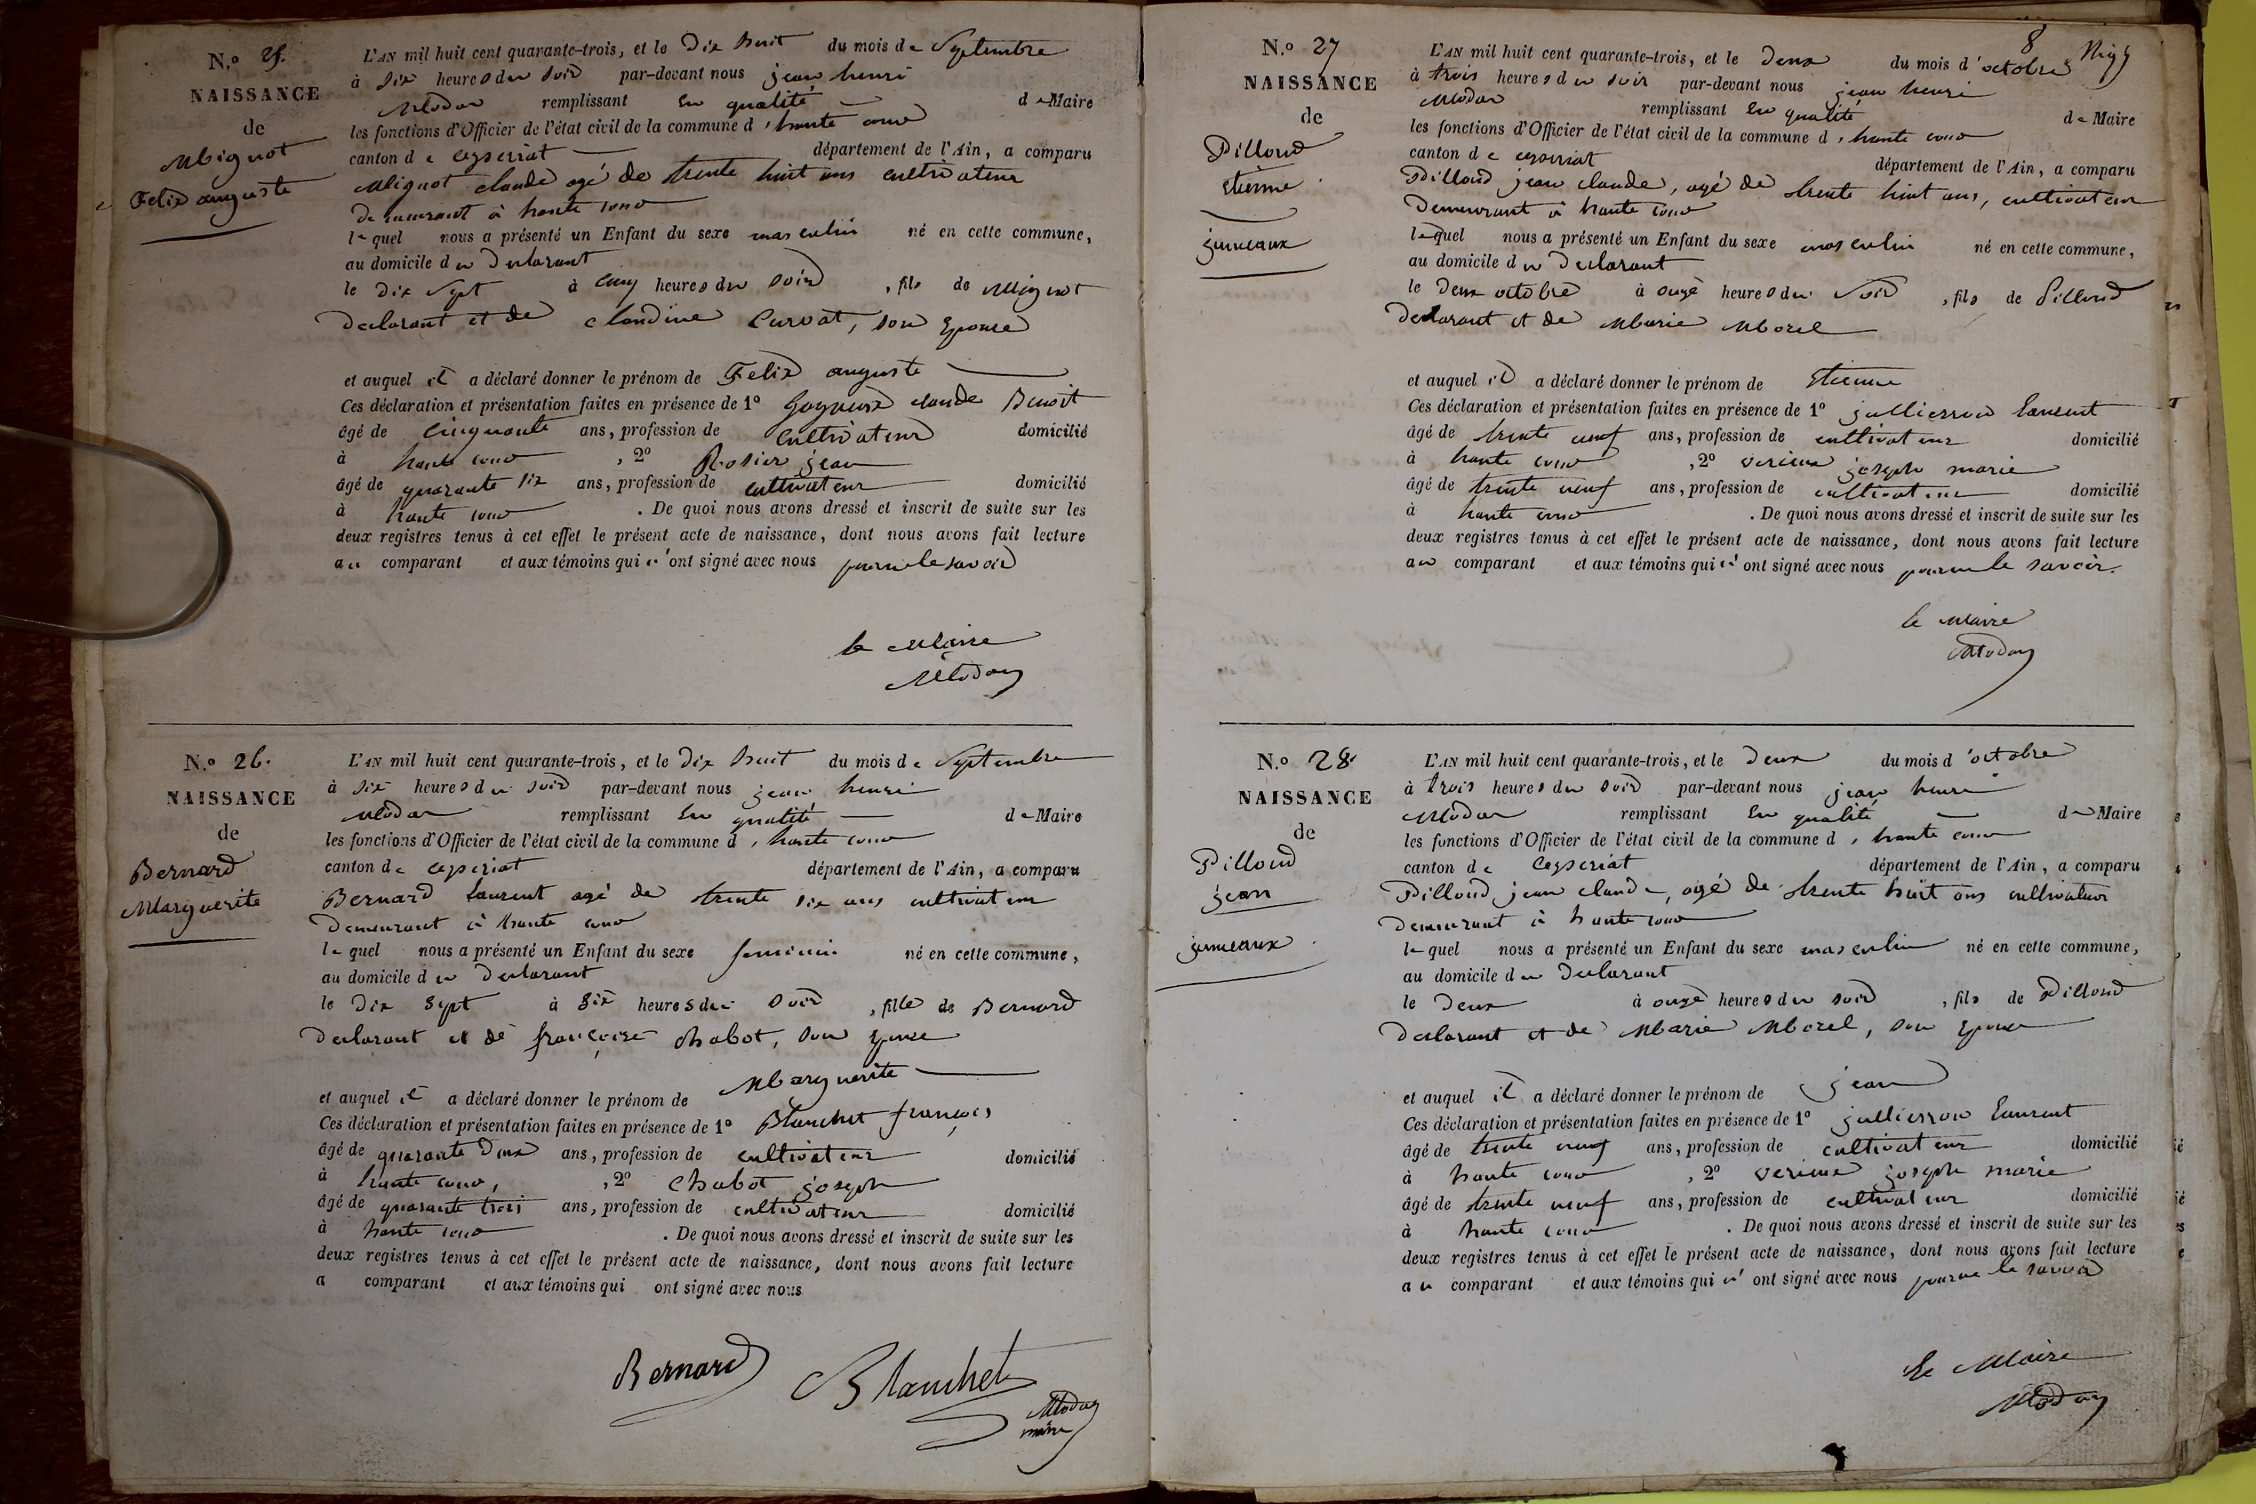 N.º 25.
NAISSANCE
de
Mignot
Felix auguste
L'AN mil huit cent quarante-trois, et le Dix huit du mois de Septembre
à six heures du soir par-devant nous jean henri
Modas remplissant en qualité de Maire
les fonctions d'Officier de l'état civil de la commune d'haute cour
canton de ceyseriat département de l'Ain, a comparu
Mignot claude agé de trente huit ans cultivateur
Demeurant à haute cour
lequel nous a présenté un Enfant du sexe masculin né en cette commune,
au domicile du Declarant
le Dix Sept à cinq heures du soir, fils de Mignot
Declarant et de claudine Curvat, son Epouse
et auquel il a déclaré donner le prénom de Felix auguste
Ces déclaration et présentation faites en présence de 1º claude Benoit
âgé de cinquante ans, profession de cultivateur domicilié
à haute cour, 2º Rosier jean
âgé de quarante six ans, profession de cultivateur domicilié
à haute cour. De quoi nous avons dressé et inscrit de suite sur les
deux registres tenus à cet effet le présent acte de naissance, dont nous avons fait lecture
au comparant et aux témoins qui n'ont signé avec nous pour ne le savoir
le Maire
N.º 26.
NAISSANCE
de
Bernard
Marguerite
L'AN mil huit cent quarante-trois, et le Dix huit du mois de Septembre
à six heures du soir par-devant nous jean henri
Modas remplissant en qualité de Maire
les fonctions d'Officier de l'état civil de la commune d'haute cour
canton de ceyseriat département de l'Ain, a comparu
Bernard Laurent agé de trente six ans cultivateur
Demeurant à haute cour
lequel nous a présenté un Enfant du sexe feminin né en cette commune,
au domicile du Declarant
le Dix Sept à six heures du soir, fille de Bernard
Declarant et de françoise Chabot, son Epouse
et auquel il a déclaré donner le prénom de Marguerite
Ces déclaration et présentation faites en présence de 1º Blanchet françois
âgé de quarante Deux ans, profession de cultivateur domicilié
à haute cour, 2º Chabot joseph
âgé de quarante trois ans, profession de cultivateur domicilié
à haute cour. De quoi nous avons dressé et inscrit de suite sur les
deux registres tenus à cet effet le présent acte de naissance, dont nous avons fait lecture
a comparant et aux témoins qui ont signé avec nous
Bernard Blanchet
maire
8
N.º 27
NAISSANCE
de
Pilloud
Etienne
jumeaux
L'AN mil huit cent quarante-trois, et le Deux du mois d'octobre
à trois heures du soir par-devant nous jean henri
Modas remplissant en qualité de Maire
les fonctions d'Officier de l'état civil de la commune d'haute cour
canton de ceyseriat département de l'Ain, a comparu
Pilloud jean claude, agé de trente huit ans, cultivateur
Demeurant à haute cour
lequel nous a présenté un Enfant du sexe masculin né en cette commune,
au domicile du Declarant
le Deux octobre à onze heures du soir, fils de Pilloud
Declarant et de Marie Morel
et auquel il a déclaré donner le prénom de Etienne
Ces déclaration et présentation faites en présence de 1º jullierron Laurent
âgé de trente neuf ans, profession de cultivateur domicilié
à haute cour, 2º joseph marie
âgé de trente neuf ans, profession de cultivateur domicilié
à haute cour. De quoi nous avons dressé et inscrit de suite sur les
deux registres tenus à cet effet le présent acte de naissance, dont nous avons fait lecture
au comparant et aux témoins qui n'ont signé avec nous pour ne le savoir.
le Maire
N.º 28
NAISSANCE
de
Pilloud
jean
jumeaux
L'AN mil huit cent quarante-trois, et le Deux du mois d'octobre
à trois heures du soir par-devant nous jean henri
Modas remplissant en qualité de Maire
les fonctions d'Officier de l'état civil de la commune d'haute cour
canton de Ceyseriat département de l'Ain, a comparu
Pilloud jean claude, agé de trente huit ans cultivateur
Demeurant à haute cour
lequel nous a présenté un Enfant du sexe masculin né en cette commune,
au domicile du Declarant
le Deux à onze heures du soir, fils de Pilloud
Declarant et de Marie Morel, son Epouse
et auquel il a déclaré donner le prénom de jean
Ces déclaration et présentation faites en présence de 1º jullierron Laurent
âgé de trente neuf ans, profession de cultivateur domicilié
à haute cour, 2º joseph marie
âgé de trente neuf ans, profession de cultivateur domicilié
à haute cour. De quoi nous avons dressé et inscrit de suite sur les
deux registres tenus à cet effet le présent acte de naissance, dont nous avons fait lecture
au comparant et aux témoins qui n'ont signé avec nous pour ne le savoir
Le Maire